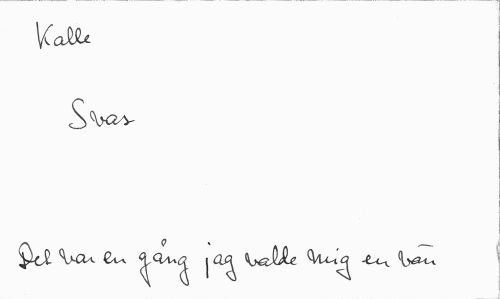 Kalle
Svas
Det var en gång jag valde mig en vän